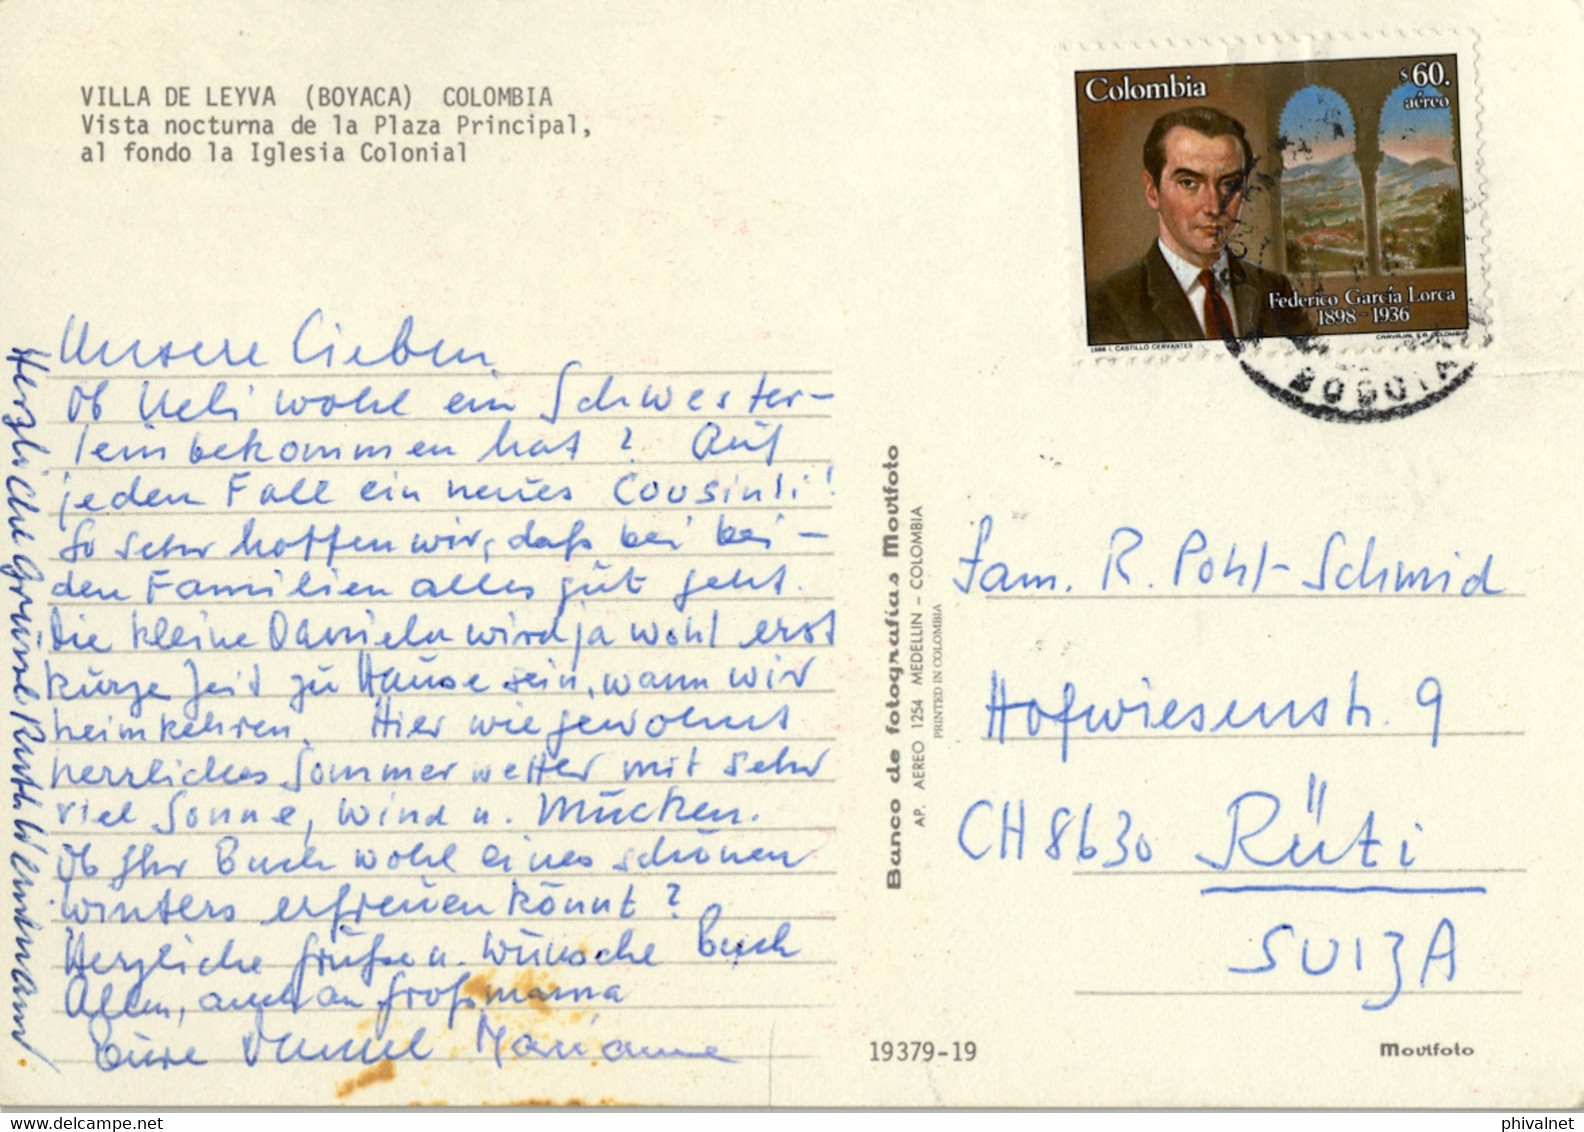 VILLA DE LEYVA (BOYACA) COLOMBIA
Vista nocturna de la Plaza Principal,
al fondo la Iglesia Colonial
Colombia
$60.
aéreo
Federico García Lorca
1898-1936
1986 I. CASTILLO CERVANTES
CARVAJAL S.A. COLOMBIA
BOGOTA
Unsere Lieben
Ob Ueli wohl ein Schwester-
lein bekommen hat? Auf
jeden Fall ein neues Cousinli!
So sehr hoffen wir, daß bei bei-
den Familien alles gut geht.
Die kleine Daniela wird ja wohl erst
kurze Zeit zu Hause sein, wann wir
heimkehren. Hier wie gewohnt
herrliches Sommerwetter mit sehr
viel Sonne, Wind u. Mücken.
Ob Ihr Euch wohl eines schönen
Winters erfreuen könnt?
Herzliche Grüße u. Wünsche Euch
Allen, auch an Großmama
Eure Marianne
Herzliche Grüsse Ruth
Banco de fotografías Movifoto
AP. AEREO 1254 MEDELLIN - COLOMBIA
PRINTED IN COLOMBIA
Fam. R. Pohl-Schmid
Hofwiesenstr. 9
CH 8630 Rüti
SUIZA
19379-19
Movifoto
phivalnet.com
phivalnet